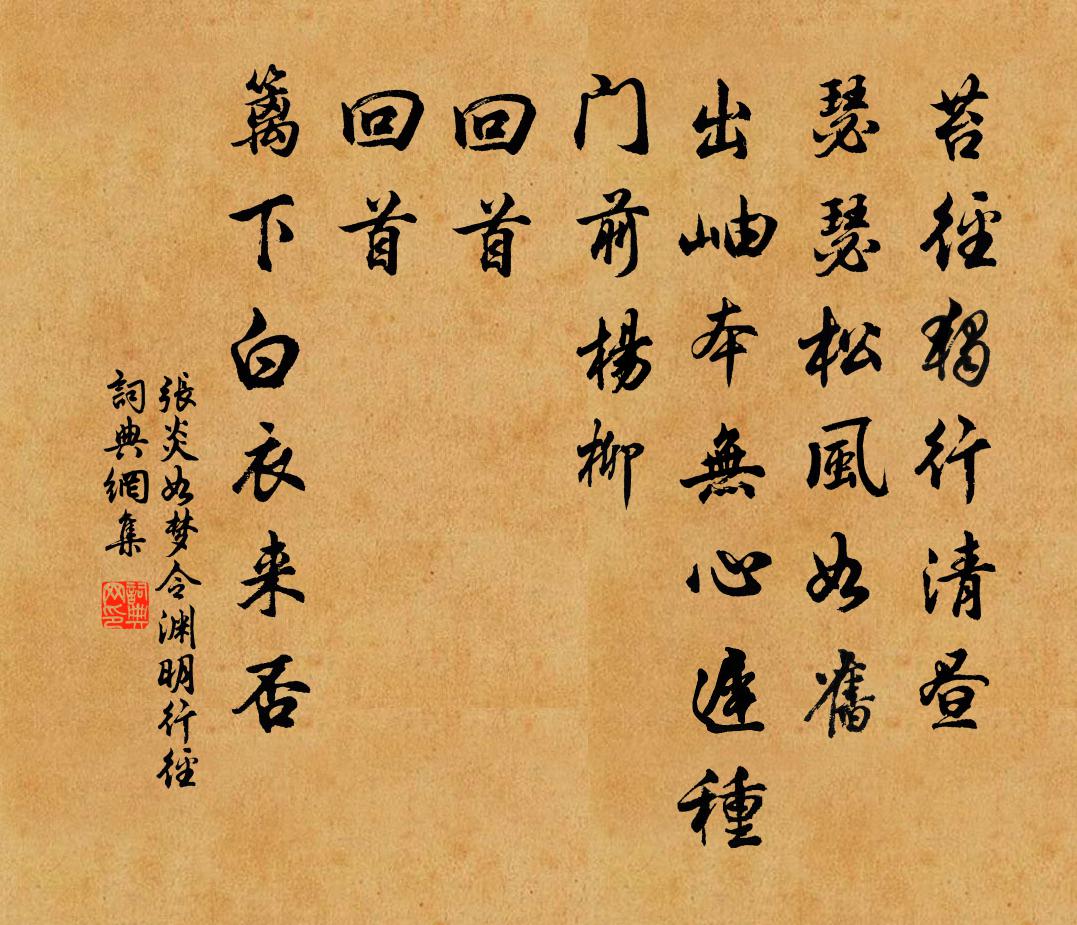 苔徑獨行清晝
瑟瑟松風如舊
出岫本無心遲種
门前楊柳
回首
回首
篱下白衣来否
張炎如梦令渊明行徑
詞典網集
詞典网印